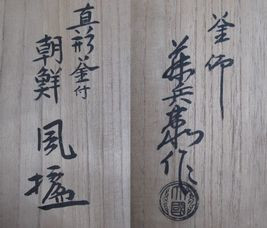 真形釜付
朝鮮
風炉
釜師
兵衛作